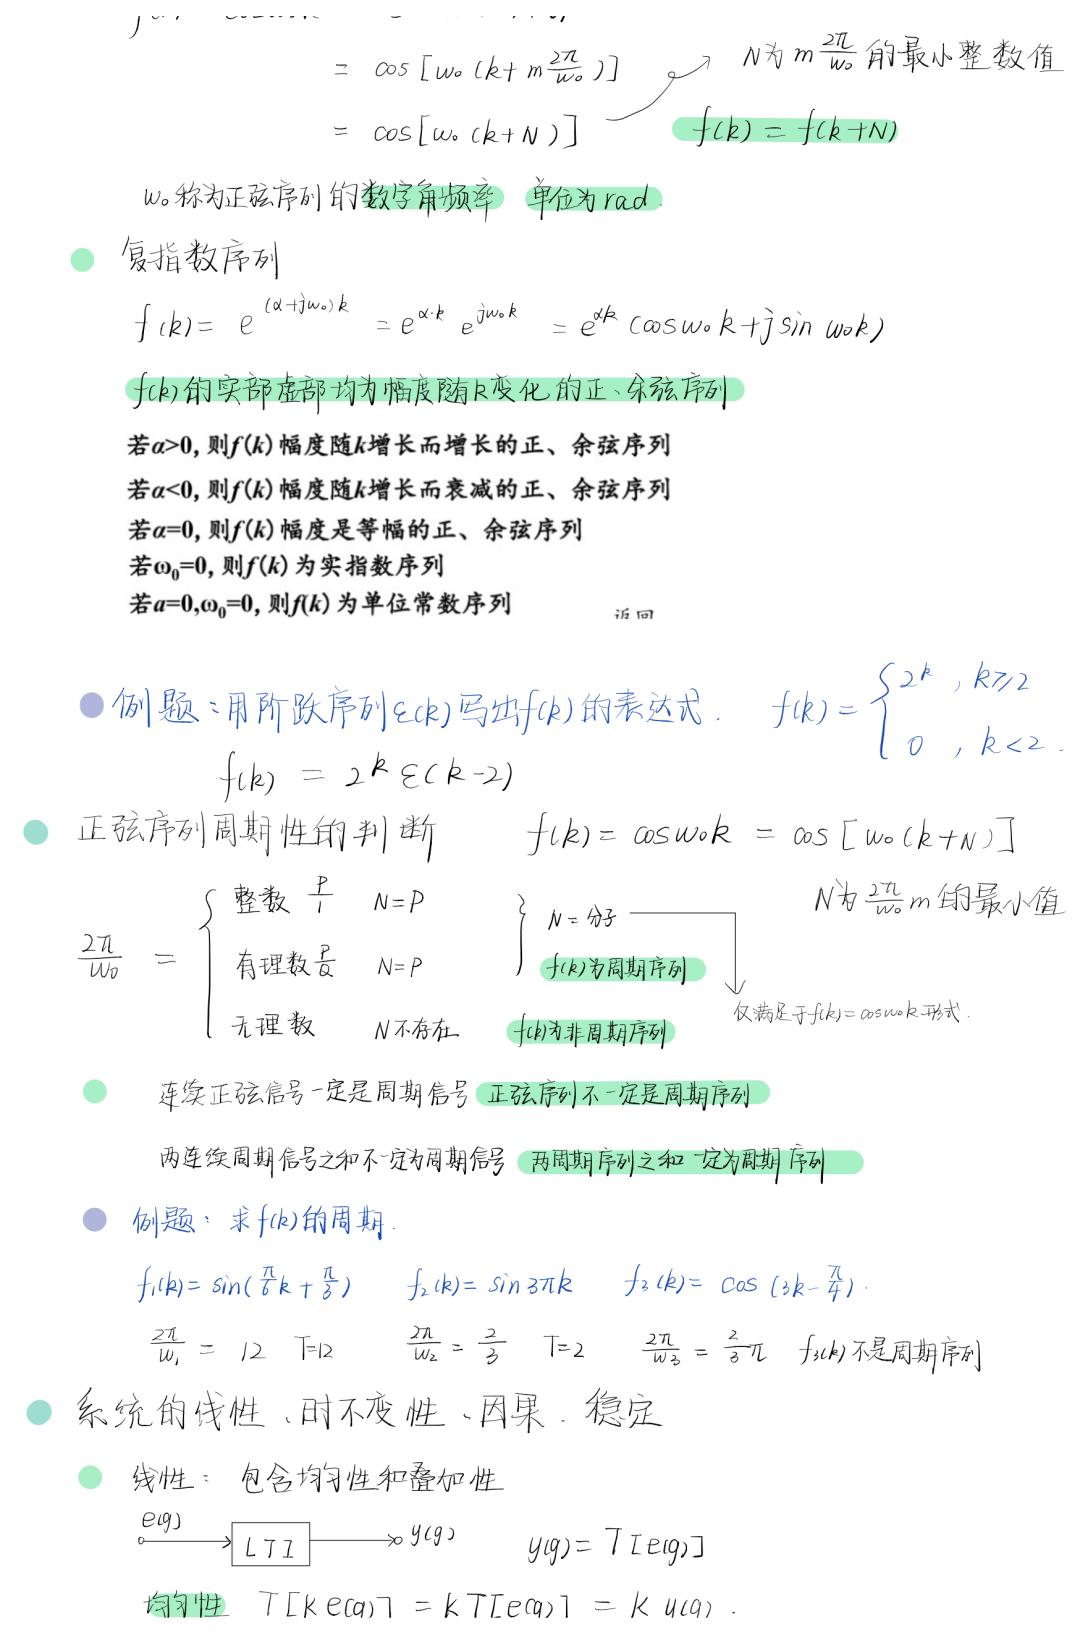 = cos[w₀(k+m 2π/w₀)] N为 m 2π/w₀ 的最小整数值
= cos[w₀(k+N)] f(k) = f(k+N)
w₀称为正弦序列的数字角频率 单位为rad.
复指数序列
f(k) = e^(α+jw₀)k = e^α·k e^jw₀k = e^αk (cosw₀k+jsin w₀k)
f(k)的实部虚部均为幅度随k变化的正、余弦序列
若α>0, 则f(k)幅度随k增长而增长的正、余弦序列
若α<0, 则f(k)幅度随k增长而衰减的正、余弦序列
若α=0, 则f(k)幅度是等幅的正、余弦序列
若ω₀=0, 则f(k)为实指数序列
若a=0,ω₀=0, 则f(k)为单位常数序列
返回
例题：用阶跃序列ε(k)写出f(k)的表达式. f(k) = { 2^k , k≥2
0 , k<2.
f(k) = 2^k ε(k-2)
正弦序列周期性的判断 f(k) = cosw₀k = cos[w₀(k+N)]
N为 2π/w₀ m的最小值
整数 P/1 N=P
N=分子
2π/w₀ =
有理数 P/Q N=P f(k)为周期序列
仅满足于f(k)=cosw₀k形式.
无理数 N不存在 f(k)为非周期序列
连续正弦信号一定是周期信号 正弦序列不一定是周期序列
两连续周期信号之和不一定为周期信号 两周期序列之和一定为周期序列
例题：求f(k)的周期.
f₁(k) = sin(π/6 k + π/3) f₂(k) = sin3πk f₃(k) = cos(3k-π/4).
2π/w₁ = 12 T=12 2π/w₂ = 2/3 T=2 2π/w₃ = 2/3 π f₃(k)不是周期序列
系统的线性、时不变性、因果. 稳定
线性：包含均匀性和叠加性
e(g) LTI y(g) y(g) = T[e(g)]
均匀性 T[k e(g)] = kT[e(g)] = k y(g).